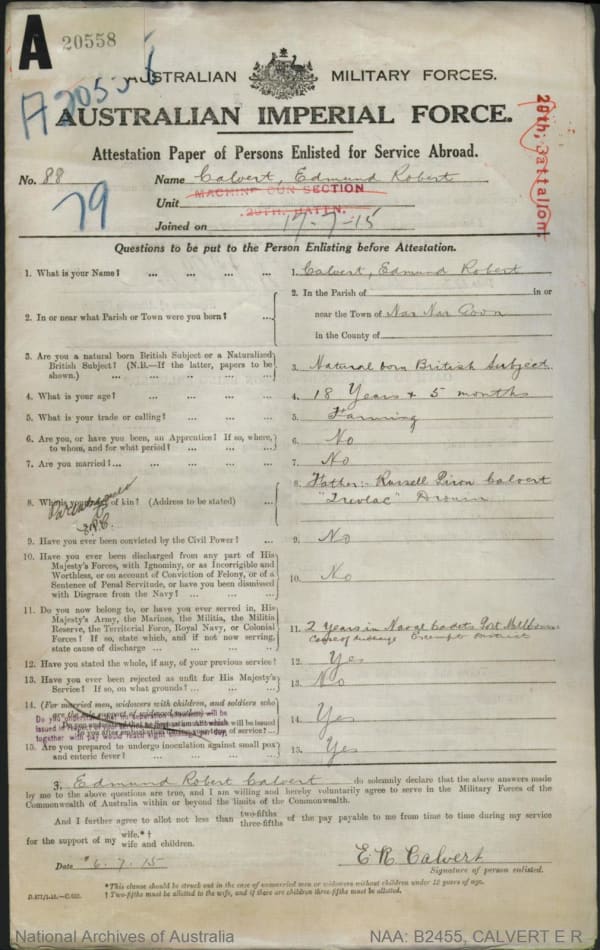 A 20558
A20558
AUSTRALIAN MILITARY FORCES.
AUSTRALIAN IMPERIAL FORCE.
Attestation Paper of Persons Enlisted for Service Abroad.
28th, Battalion
No. 88 Name Calvert, Edmund Robert
79
Unit MACHINE GUN SECTION
Joined on 17-7-15
Questions to be put to the Person Enlisting before Attestation.
1. What is your Name? ... ... ... ... 1. Calvert, Edmund Robert
2. In or near what Parish or Town were you born? ... 2. In the Parish of in or
near the Town of Nar Nar Goon
in the County of
3. Are you a natural born British Subject or a Naturalized
British Subject? (N.B.—If the latter, papers to be
shown.) ... ... ... ... ... 3. Natural born British Subject
4. What is your age? ... ... ... ... 4. 18 Years + 5 months
5. What is your trade or calling? ... ... ... 5. Farming
6. Are you, or have you been, an Apprentice? If so, where,
to whom, and for what period? ... ... ... 6. No
7. Are you married? ... ... ... ... 7. No
8. Who is your next of kin? (Address to be stated) ... 8. Father:- Russell Calvert
"Trevlac" Drouin
9. Have you ever been convicted by the Civil Power? ... 9. No
10. Have you ever been discharged from any part of His
Majesty's Forces, with Ignominy, or as Incorrigible and
Worthless, or on account of Conviction of Felony, or of a
Sentence of Penal Servitude, or have you been dismissed
with Disgrace from the Navy? ... ... ... 10. No
11. Do you now belong to, or have you ever served in, His
Majesty's Army, the Marines, the Militia, the Militia
Reserve, the Territorial Force, Royal Navy, or Colonial
Forces? If so, state which, and if not now serving,
state cause of discharge ... ... ... ... 11. 2 Years in Naval Cadets Port Melbourne
Exempt District
12. Have you stated the whole, if any, of your previous service? 12. Yes
13. Have you ever been rejected as unfit for His Majesty's
Service? If so, on what grounds? ... ... ... 13. No
14. (For married men, widowers with children, and soldiers who
are the sole support of widowed mother)
14. Yes
together with pay would reach eight shillings per day.
15. Are you prepared to undergo inoculation against small pox
and enteric fever? ... ... ... ... 15. Yes
I, Edmund Robert Calvert do solemnly declare that the above answers made
by me to the above questions are true, and I am willing and hereby voluntarily agree to serve in the Military Forces of the
Commonwealth of Australia within or beyond the limits of the Commonwealth.
And I further agree to allot not less than two-fifths three-fifths of the pay payable to me from time to time during my service
for the support of my wife.*† wife and children.
E R Calvert
Date 6.7.15 Signature of person enlisted.
*This clause should be struck out in the case of unmarried men or widowers without children under 18 years of age.
† Two-fifths must be allotted to the wife, and if there are children three-fifths must be allotted.
National Archives of Australia NAA: B2455, CALVERT E R